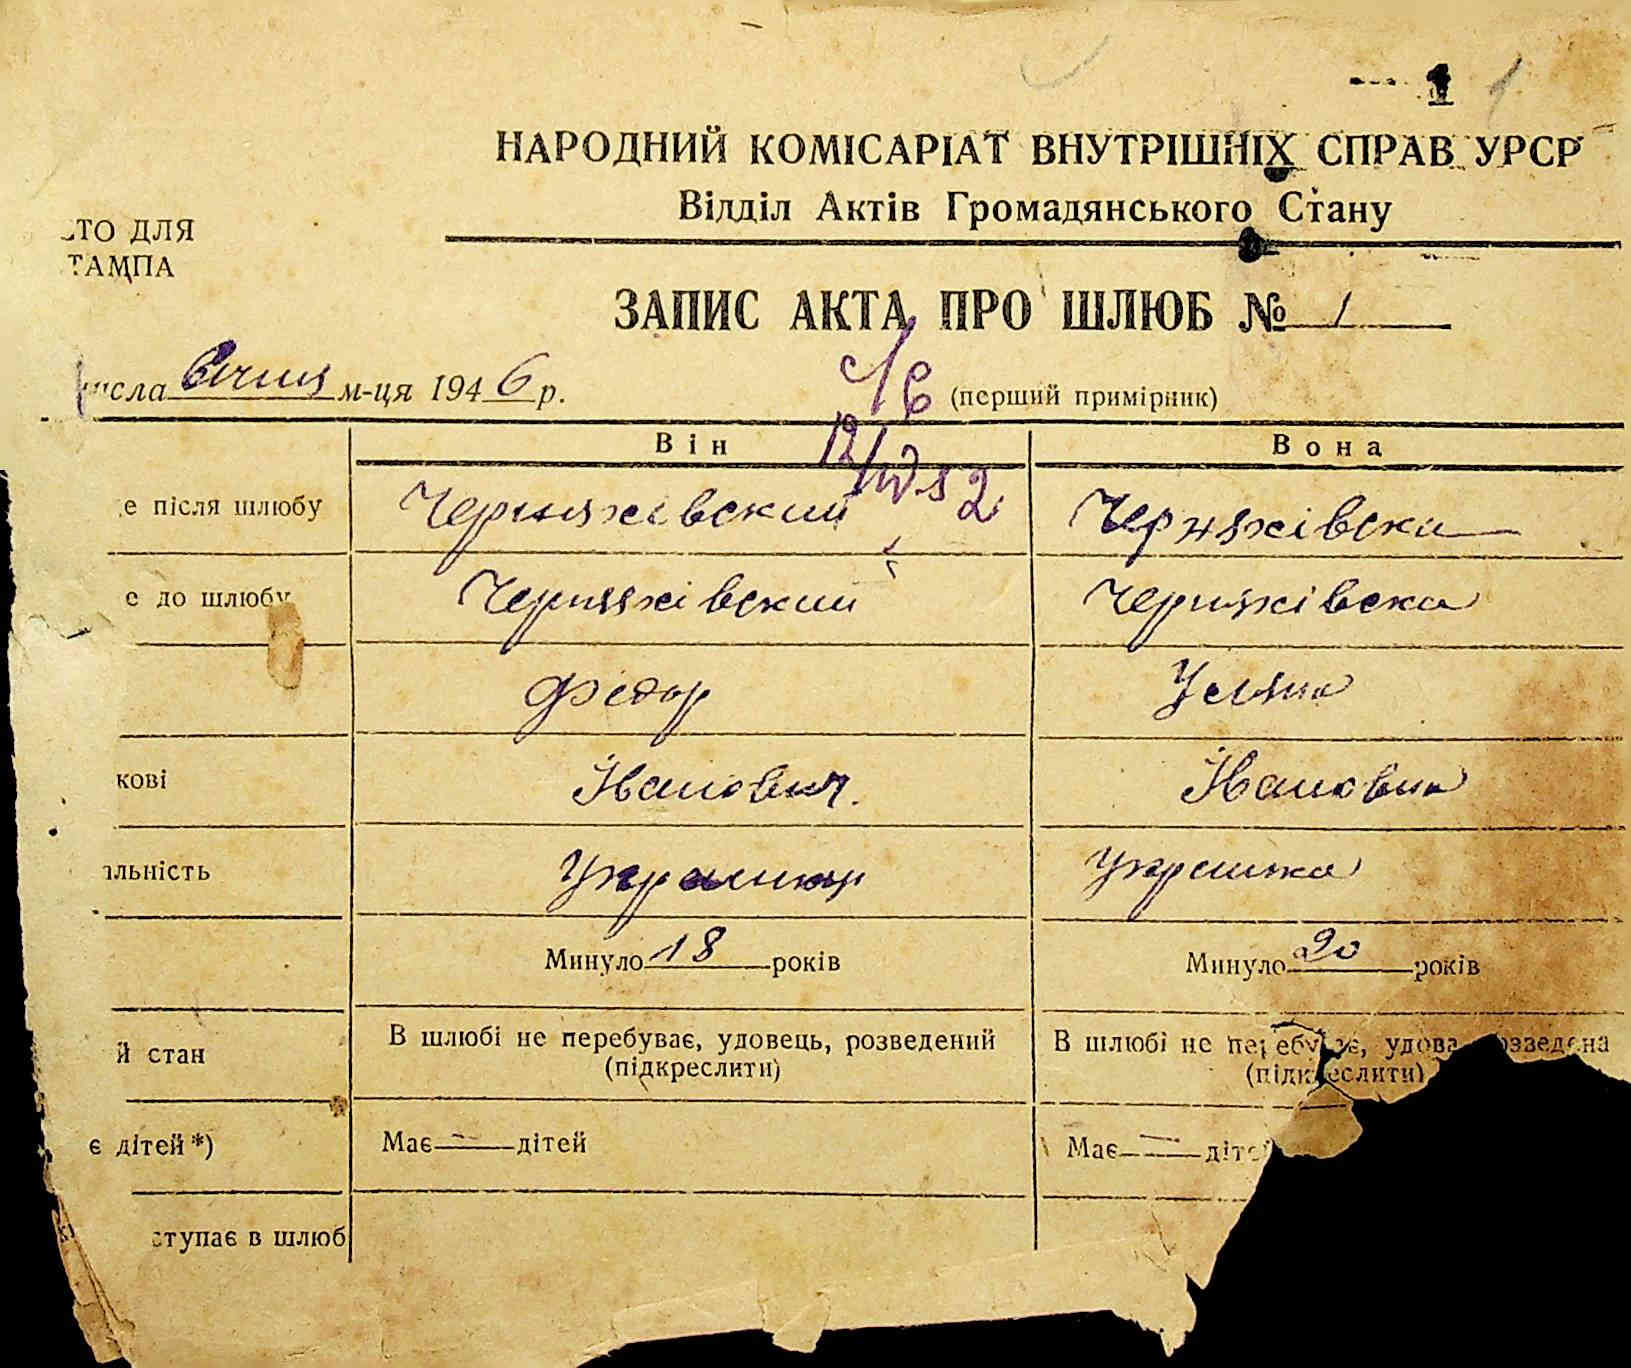 1 1
НАРОДНИЙ КОМІСАРІАТ ВНУТРІШНІХ СПРАВ УРСР
Відділ Актів Громадянського Стану
СТО ДЛЯ
ТАМПА
ЗАПИС АКТА ПРО ШЛЮБ № 1
числа січня м-ця 1946 р.
(перший примірник)
Він Вона
е після шлюбу Черняхівский Черняхівска
е до шлюбу Черняхівский Черняхівска
Федор Уляна
кові Іванович Івановна
альність Украинец Украинка
Минуло 18 років Минуло 20 років
й стан В шлюбі не перебуває, удовець, розведений В шлюбі не перебуває, удова розведена
(підкреслити) (підкреслити)
є дітей *) Має — дітей Має — діте
ступає в шлюб